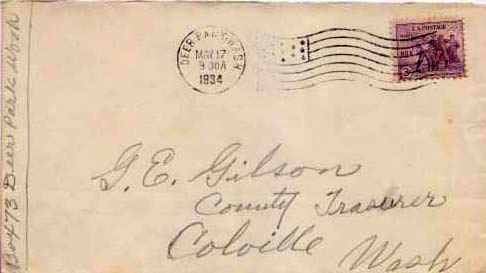 Box 473 Deer Park Wash
DEER PARK, WASH
MAY 17
9 30 A
1934
U.S. POSTAGE
NRA
3
G. E. Gilson
County Trasurer
Colville Wash